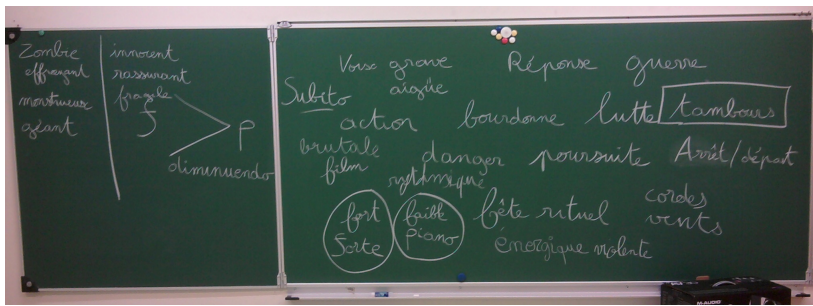 Zombre
effrayant
monstrueux
géant
innocent
rassurant
fragile
f
p
diminuendo
Voix grave
aigüe
Réponse guerre
Subito
action bourdonne lutte tambours
brutale
film
danger poursuite Arrêt/départ
rythmique
fort
forte
faible
piano
bête rituel
cordes
vents
énergique violente
M-AUDIO